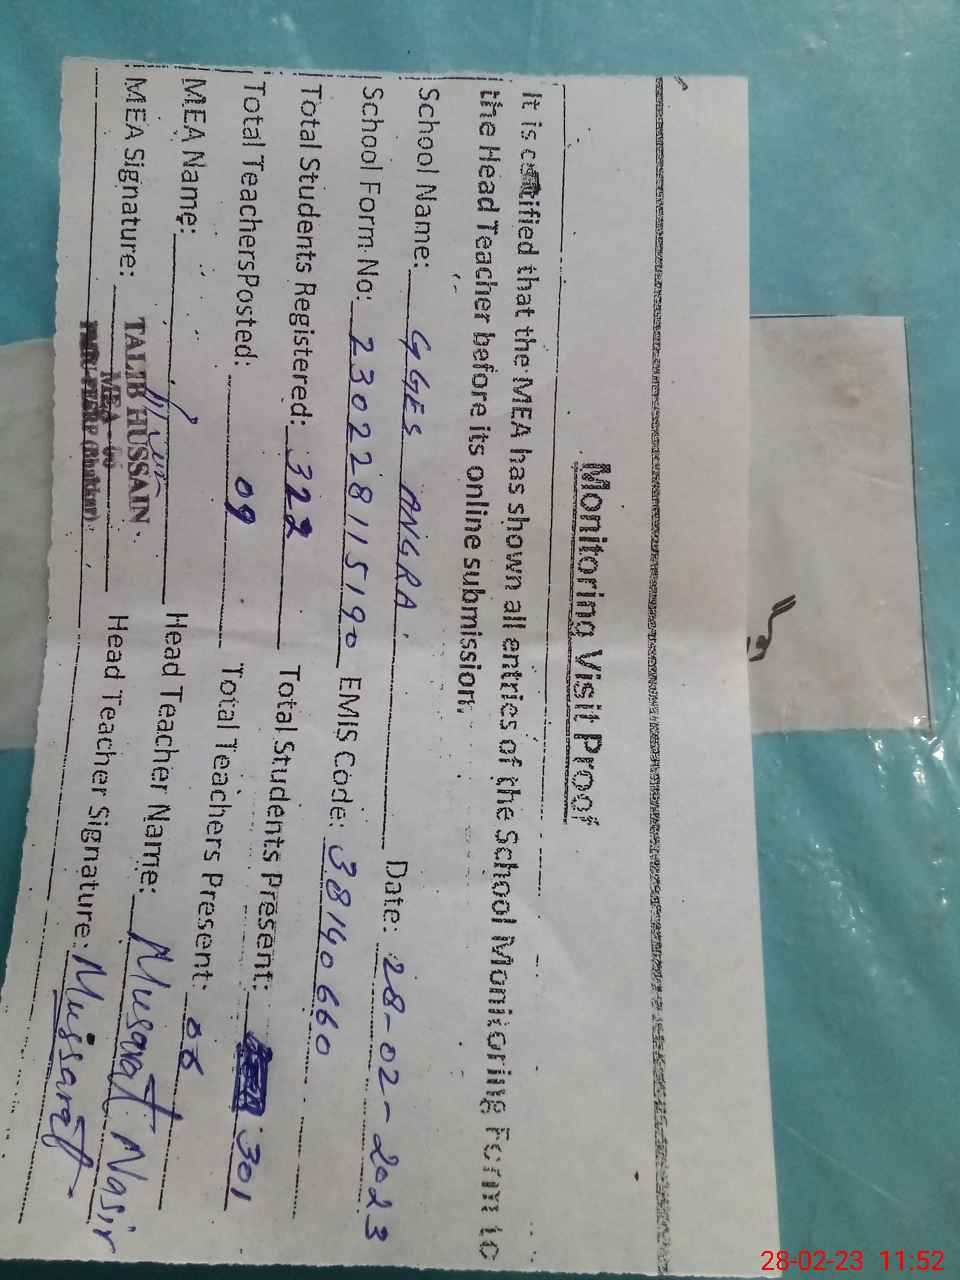 Monitoring Visit Proof
It is certified that the MEA has shown all entries of the School Monitoring Form to
the Head Teacher before its online submission.
School Name: GGES ANGRA Date: 28-02-2023
School Form No: 230228115190 EMIS Code: 38140660
Total Students Registered: 322 Total Students Present: 301
Total TeachersPosted: 09 Total Teachers Present: 06
MEA Name: Head Teacher Name: Musarat Nasir
MEA Signature: Head Teacher Signature: Mussarat
TALIB HUSSAIN
MEA - 06
(Bhakkar)
28-02-23 11:52